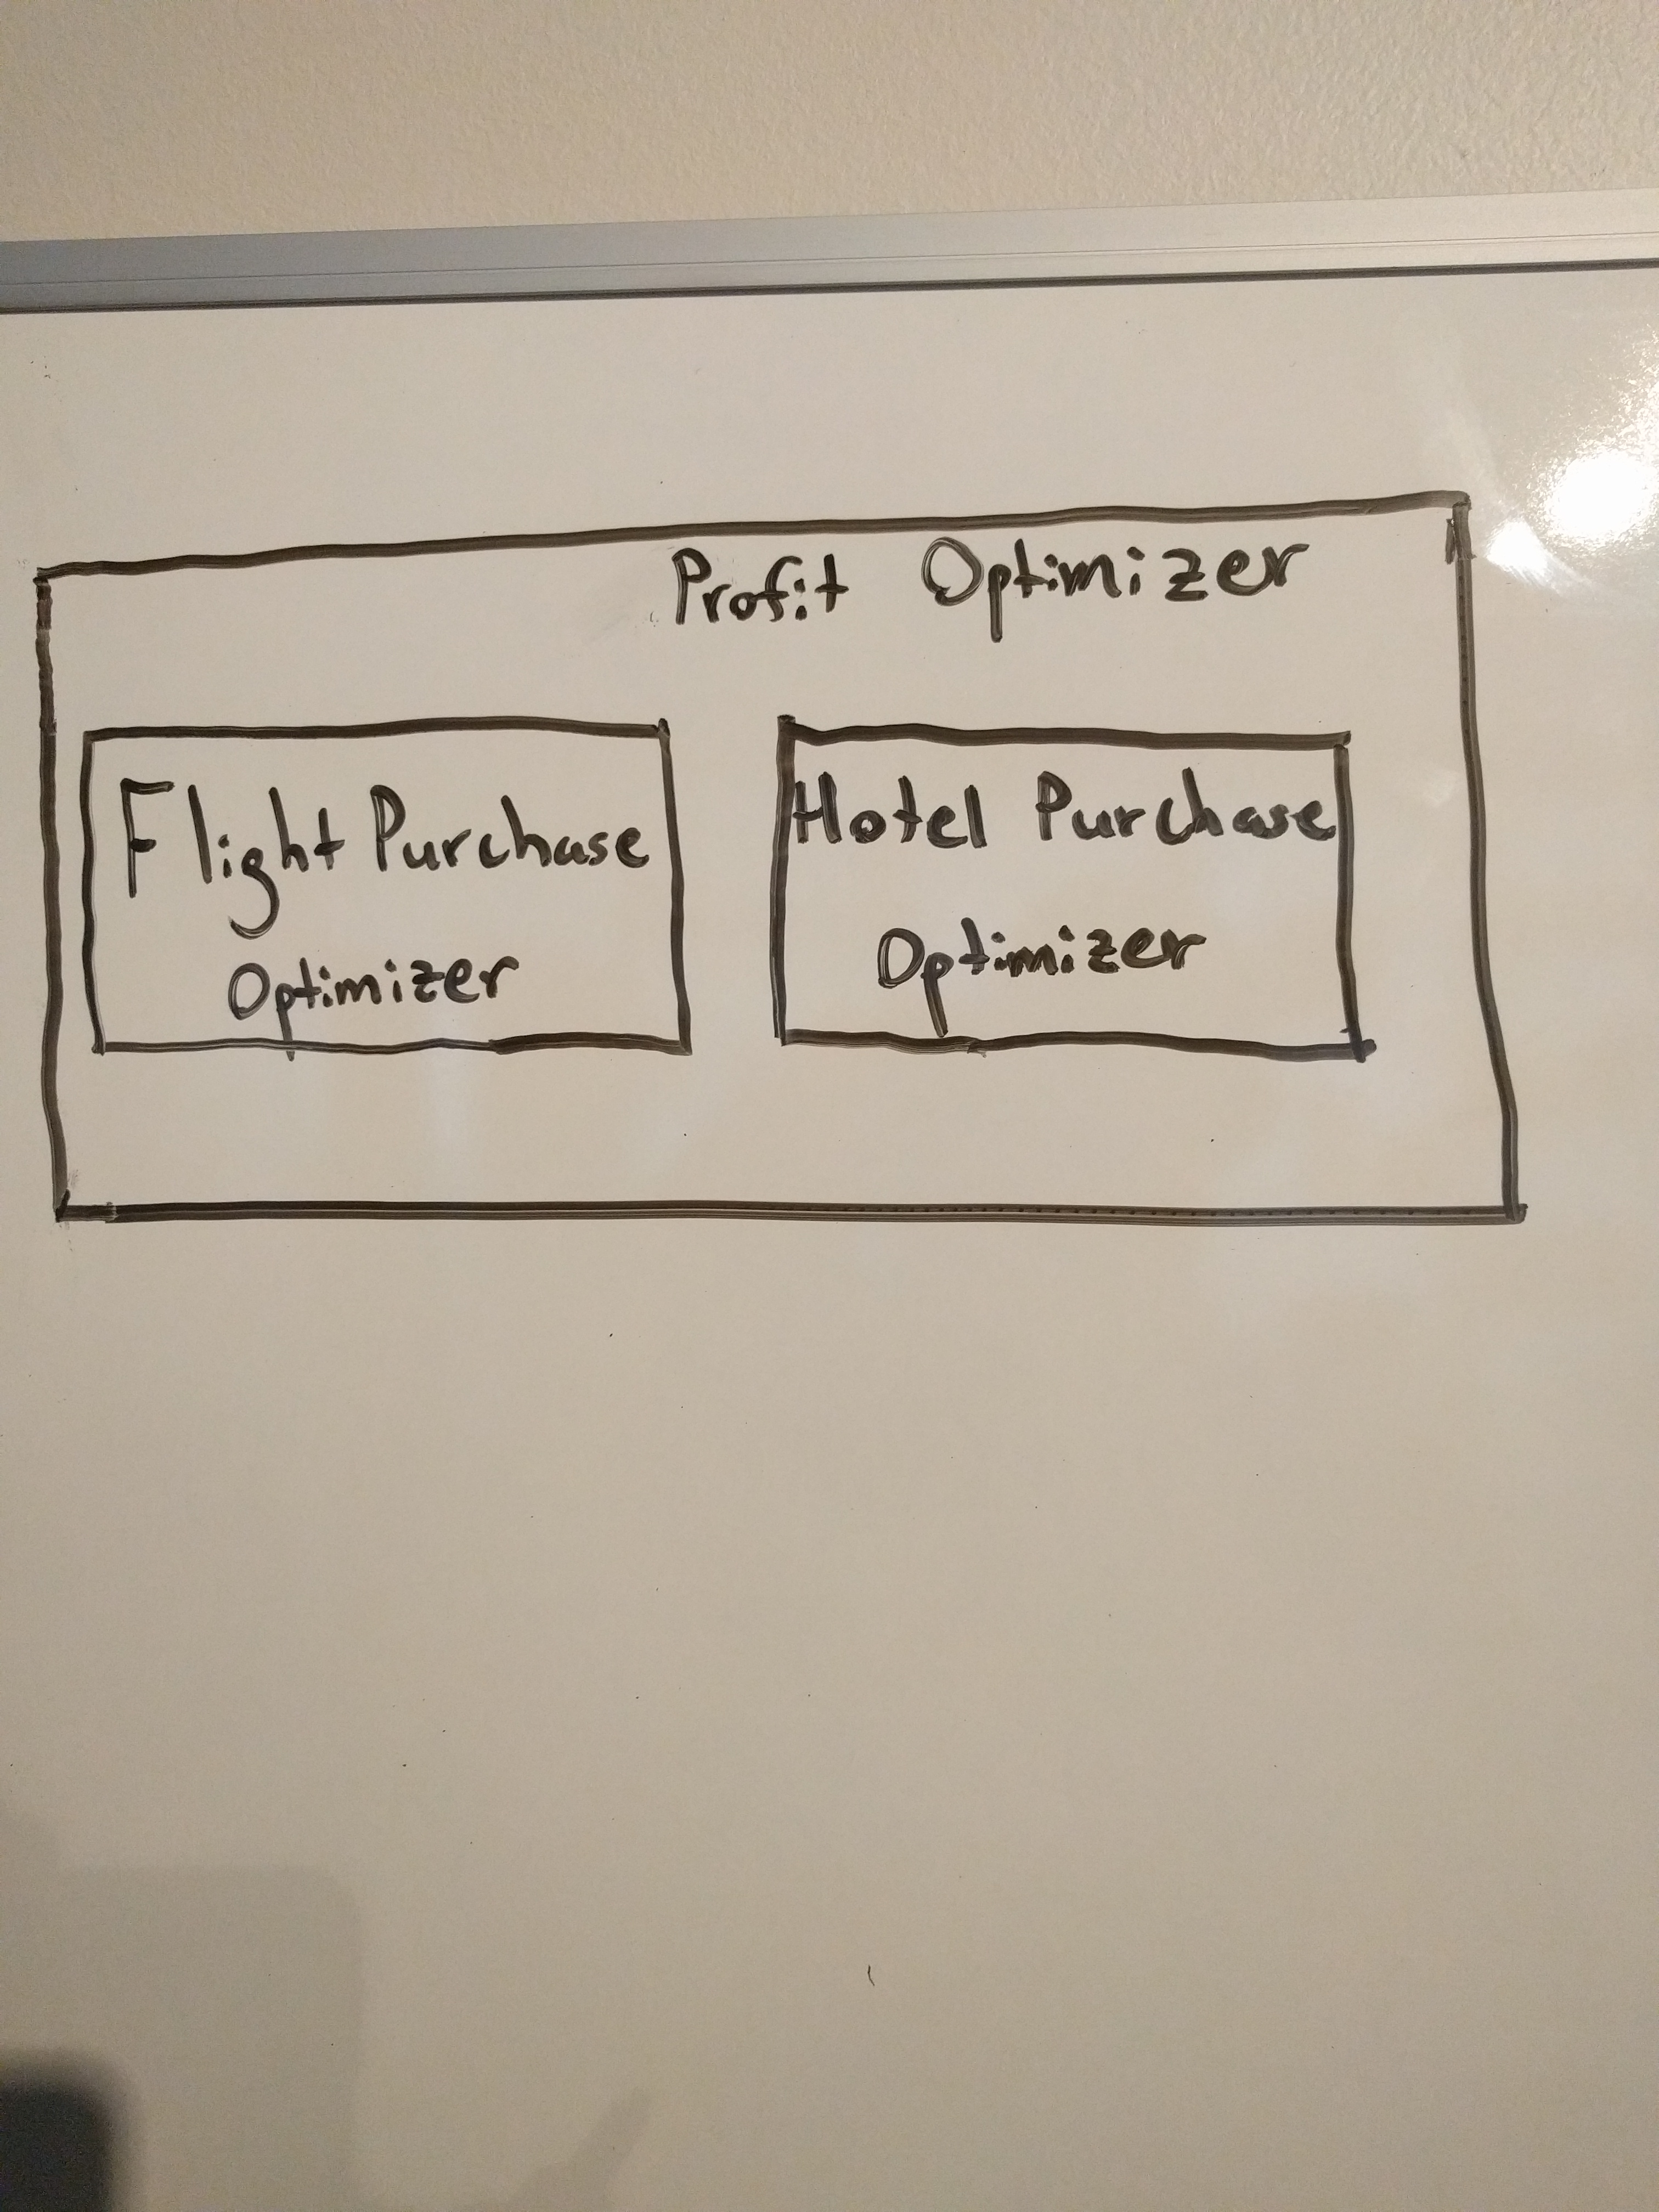 Profit Optimizer
Flight Purchase
Optimizer
Hotel Purchase
Optimizer